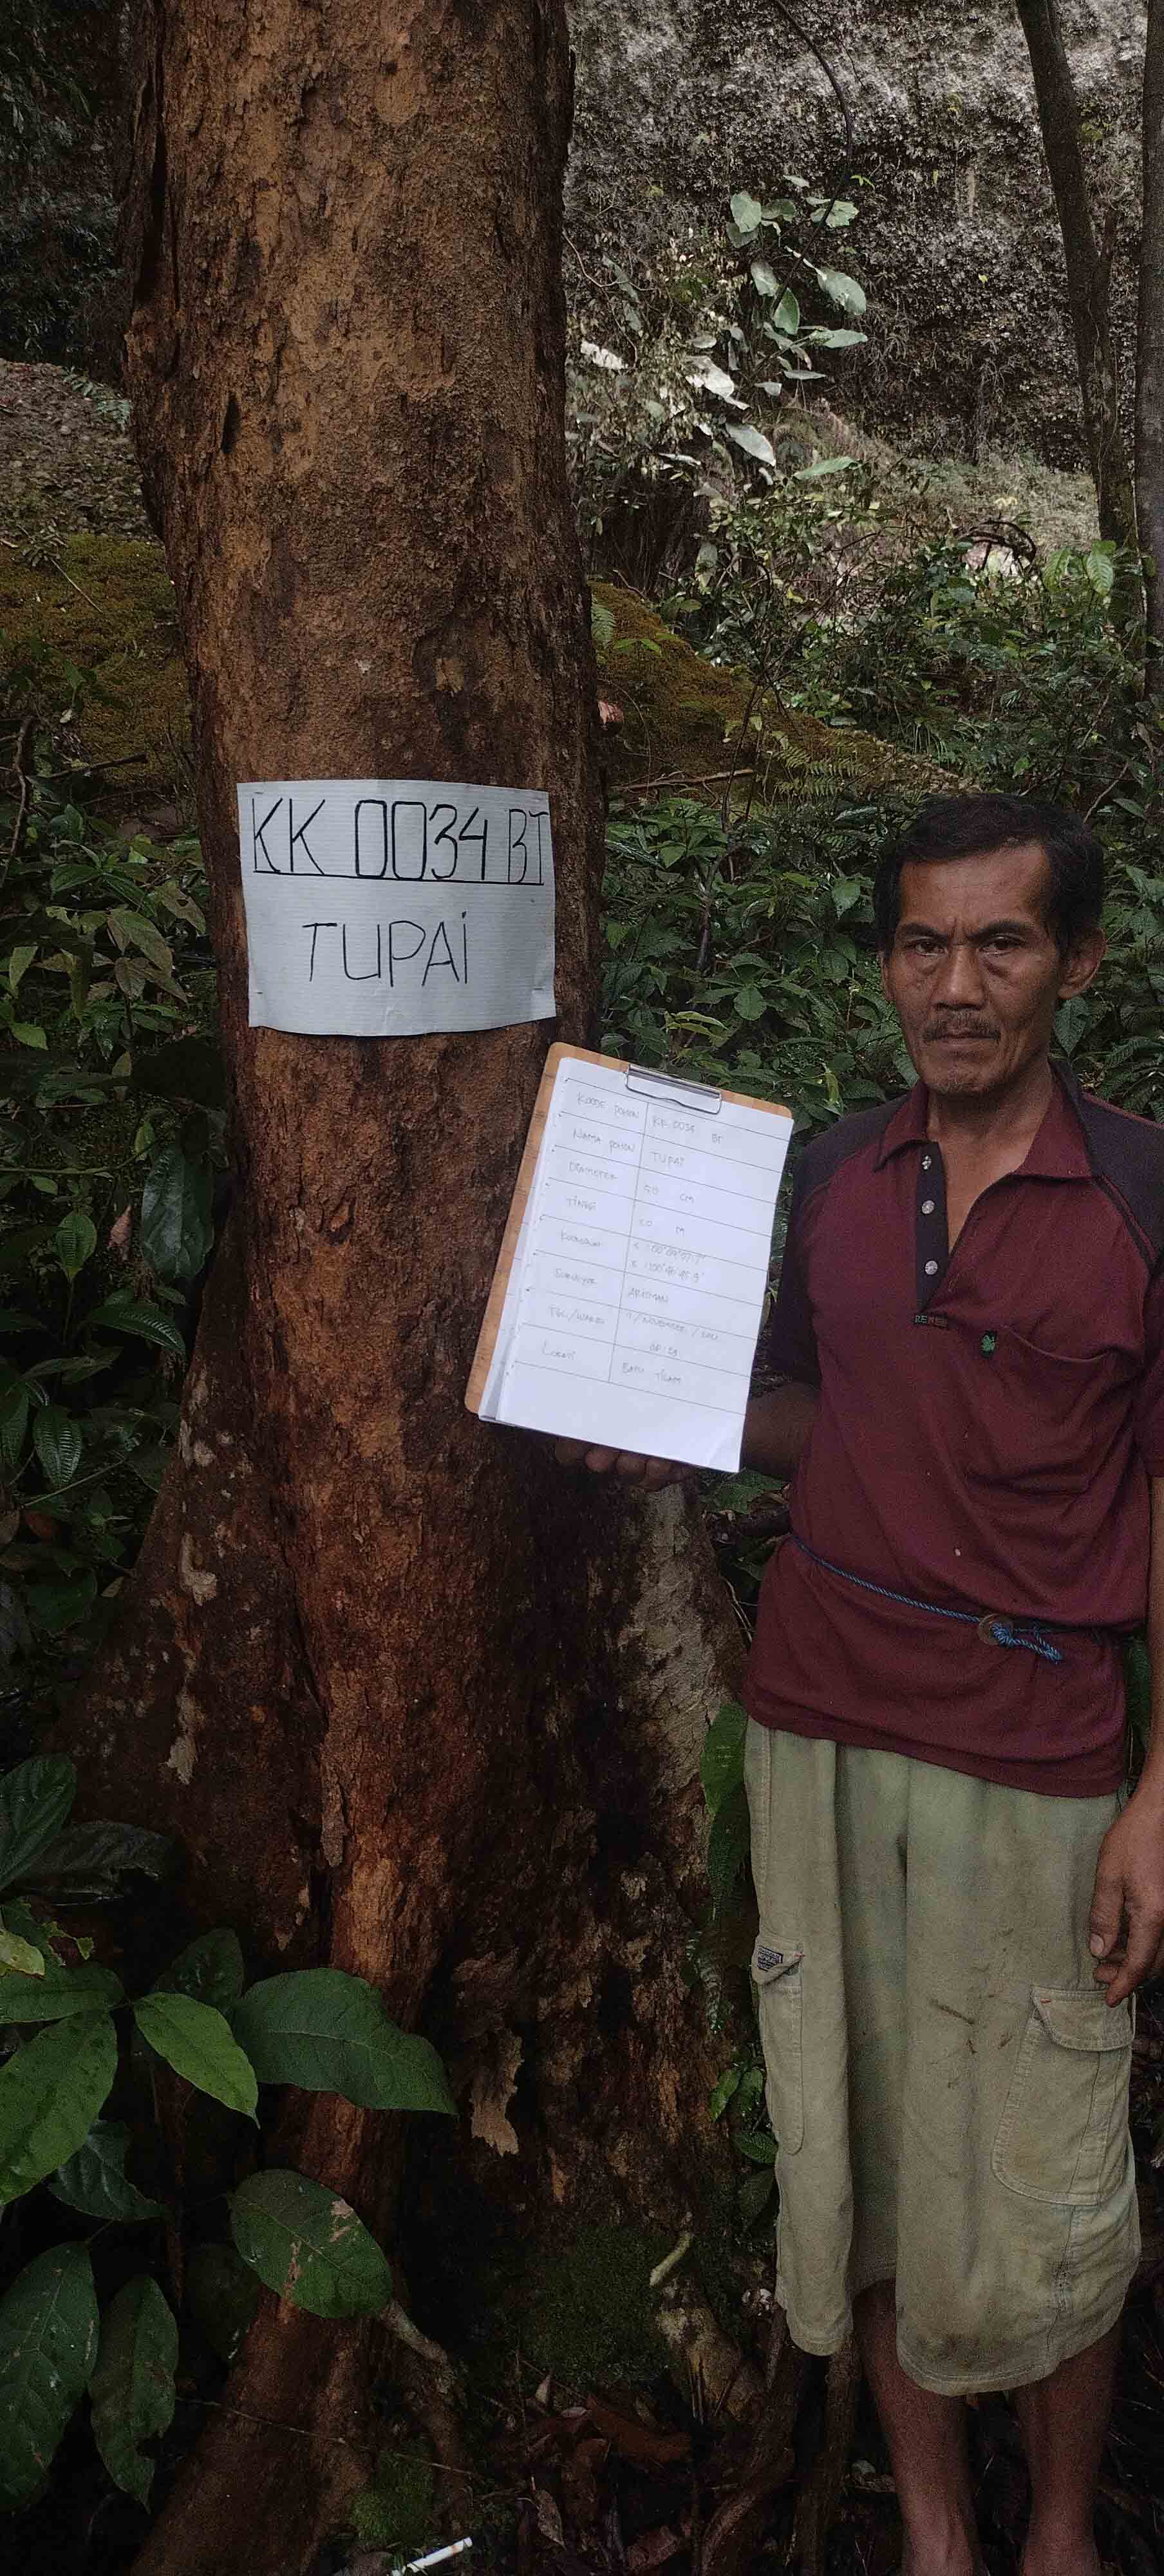 KK 0034 BT
TUPAi
KODE POHON KK 0034 BT
NAMA POHON TUPAI
DIAMETER 50 CM
TINGGI M
KOORDINAT
SURVEYOR
TGL/WAKTU / NOVEMBER /
LOKASI BATU TILAM